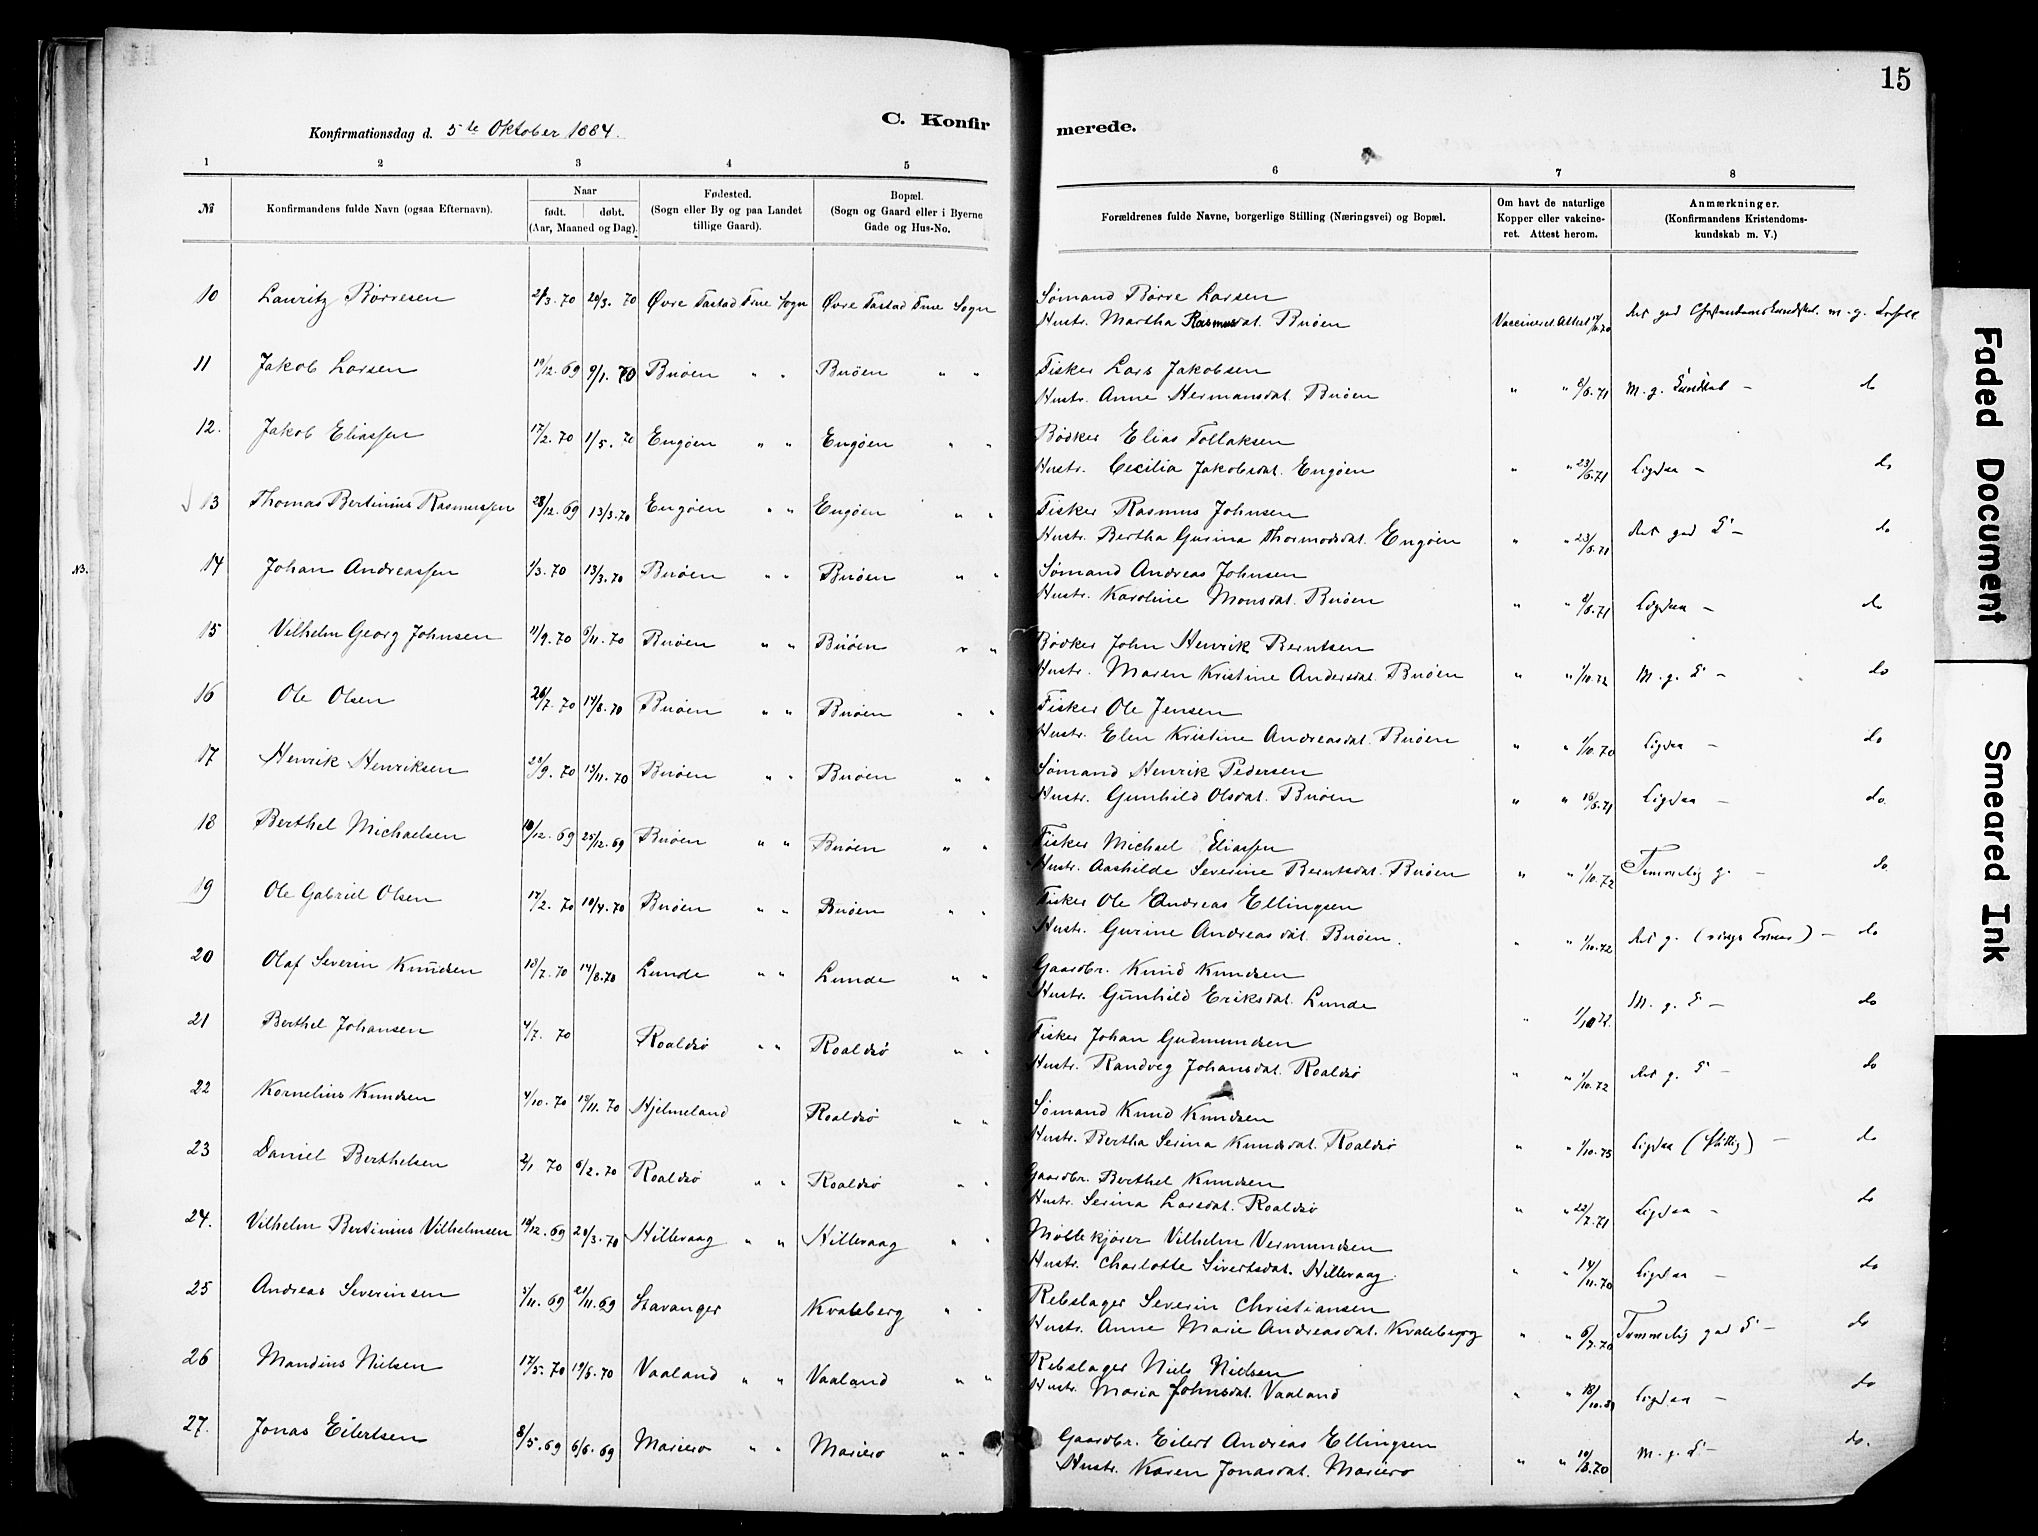 15
C. Konfirmerede.
Konfirmationsdag d. 5te Oktober 1884.
1 2 3 4 5 6 7 8
№ Konfirmandens fulde Navn (ogsaa Efternavn). Naar født. døbt. (Aar, Maaned og Dag). Fødested. (Sogn eller By og paa Landet tillige Gaard). Bopæl. (Sogn og Gaard eller i Byerne Gade og Hus-No. Forældrenes fulde Navne, borgerlige Stilling (Næringsvei) og Bopæl. Om havt de naturlige Kopper eller vaccineret. Attest herom. Anmærkninger. (Konfirmandens Kristendomskundskab m. V.)
10 Lauritz Børresen 2/3. 70 20/3. 70 Øvre Tastad Frue Sogn Øvre Tastad Frue Sogn Sømand Børre Larsen
Hustr. Martha Rasmusdat. Buøen Vaccineret Attest
11 Jakob Larsen 19/12. 69 9/1. 70 Buøen " " Buøen " " Fisker Lars Jakobsen
Hustr. Anne Hermansdat. Buøen " " 8/6. 71 M. g. Kundskab - do
12. Jakob Eliassen 17/2. 70 1/5. 70 Engøen " " Engøen " " Bødker Elias Tollaksen
Hustr. Cecilia Jakobsdat. Engøen " " 23/6. 71 Ligesaa - do
13 Thomas Bertinius Rasmussen 28/12. 69 13/3. 70 Engøen " " Engøen " " Fisker Rasmus Johnsen
Hustr. Bertha Gurina Thormodsdat. Engøen " " 23/6. 71 do
N3. 14 Johan Andreassen 1/3. 70 13/3. 70 Buøen " " Buøen " " Sømand Andreas Johnsen
Hustr. Karoline Monsdat. Buøen " " 8/6. 71 Ligesaa - do
15 Vilhelm Georg Johnsen 11/9. 70 6/11. 70 Buøen " " Buøen " " Bødker John Henrik Berntsen
Hustr. Maren Kristine Andersdat. Buøen " " 1/10. 72 M. g. K - do
16 Ole Olsen 26/7. 70 14/8. 70 Buøen " " Buøen " " Fisker Ole Jensen
Hustr. Elen Kristine Andreasdat. Buøen " " 1/10. 70 Ligesaa - do
17 Henrik Henriksen 23/9. 70 13/11. 70 Buøen " " Buøen " " Sømand Henrik Pedersen
Hustr. Gunhild Olsdat. Buøen " " 16/6. 71 Ligesaa - do.
18 Berthel Michaelsen 10/12. 69 25/12. 69 Buøen " " Buøen " " Fisker Michael Eliassen
Hustr. Aashilde Severine Berntsdat. Buøen " " 1/10. 72 Temmelig g. - do.
19 Ole Gabriel Olsen 17/2. 70 10/4. 70 Buøen " " Buøen " " Fisker Ole Andreas Ellingsen
Hustr. Gurine Andreasdat. Buøen. " " 1/10. 72 do
20 Olaf Severin Knudsen 18/7. 70 14/8. 70 Lunde " " Lunde " " Gaardbr. Knud Knudsen
Hustr. Gunhild Eriksdat. Lunde " 1/10 72. M. g. K - do
21 Berthel Johansen 4/7. 70 Roaldsø " " Roaldsø " " Fisker Johan Gudmundsen
Hustr. Randveg Johansdat. Roaldsø " " 1/10. 72 do
22 Kornelius Knudsen 4/10. 70 19/11. 70 Hjelmeland Roaldsø " " Sømand Knud Knudsen
Hustr. Bertha Serina Knudsdat. Roaldsø " " 1/10. 75 Ligesaa (flittig) - do
23 Daniel Berthelsen 2/1 70 6/2. 70 Roaldsø " " Roaldsø " " Gaardbr. Berthel Knudsen
Hustr. Serina Larsdat. Roaldsø " " 22/7. 71 Ligesaa - do
24. Vilhelm Bertinius Vilhelmsen 19/12. 69 20/3. 70 Hillevaag " " Hillevaag " " Møllekjører Vilhelm Vermundsen
Hustr. Charlotte Sivertsdat. Hillevaag. " " 14/11. 70 Ligesaa - do
25 Andreas Severinsen 3/11. 69 21/11. 69 Stavanger Kvaleberg " " Rebslager Severin Christiansen
Hustr. Anne Marie Andreasdat. Kvaleberg " " 6/7. 70 Temmelig god K - do
26 Mandius Nielsen 17/5. 70 19/6. 70 Vaaland " " Vaaland " " Rebslager Niels Nielsen
Hustr. Maria Johnsdat. Vaaland " " Ligesaa - do
27. Jonas Eilertsen 8/5. 69 6/6. 69 Mariero " " Mariero " " Gaardbr. Eilert Andreas Ellingsen
Hustr. Karen Jonasdat. Mariero " " 19/8. 70 M. g. K - do.
Faded Document
Smeared Ink